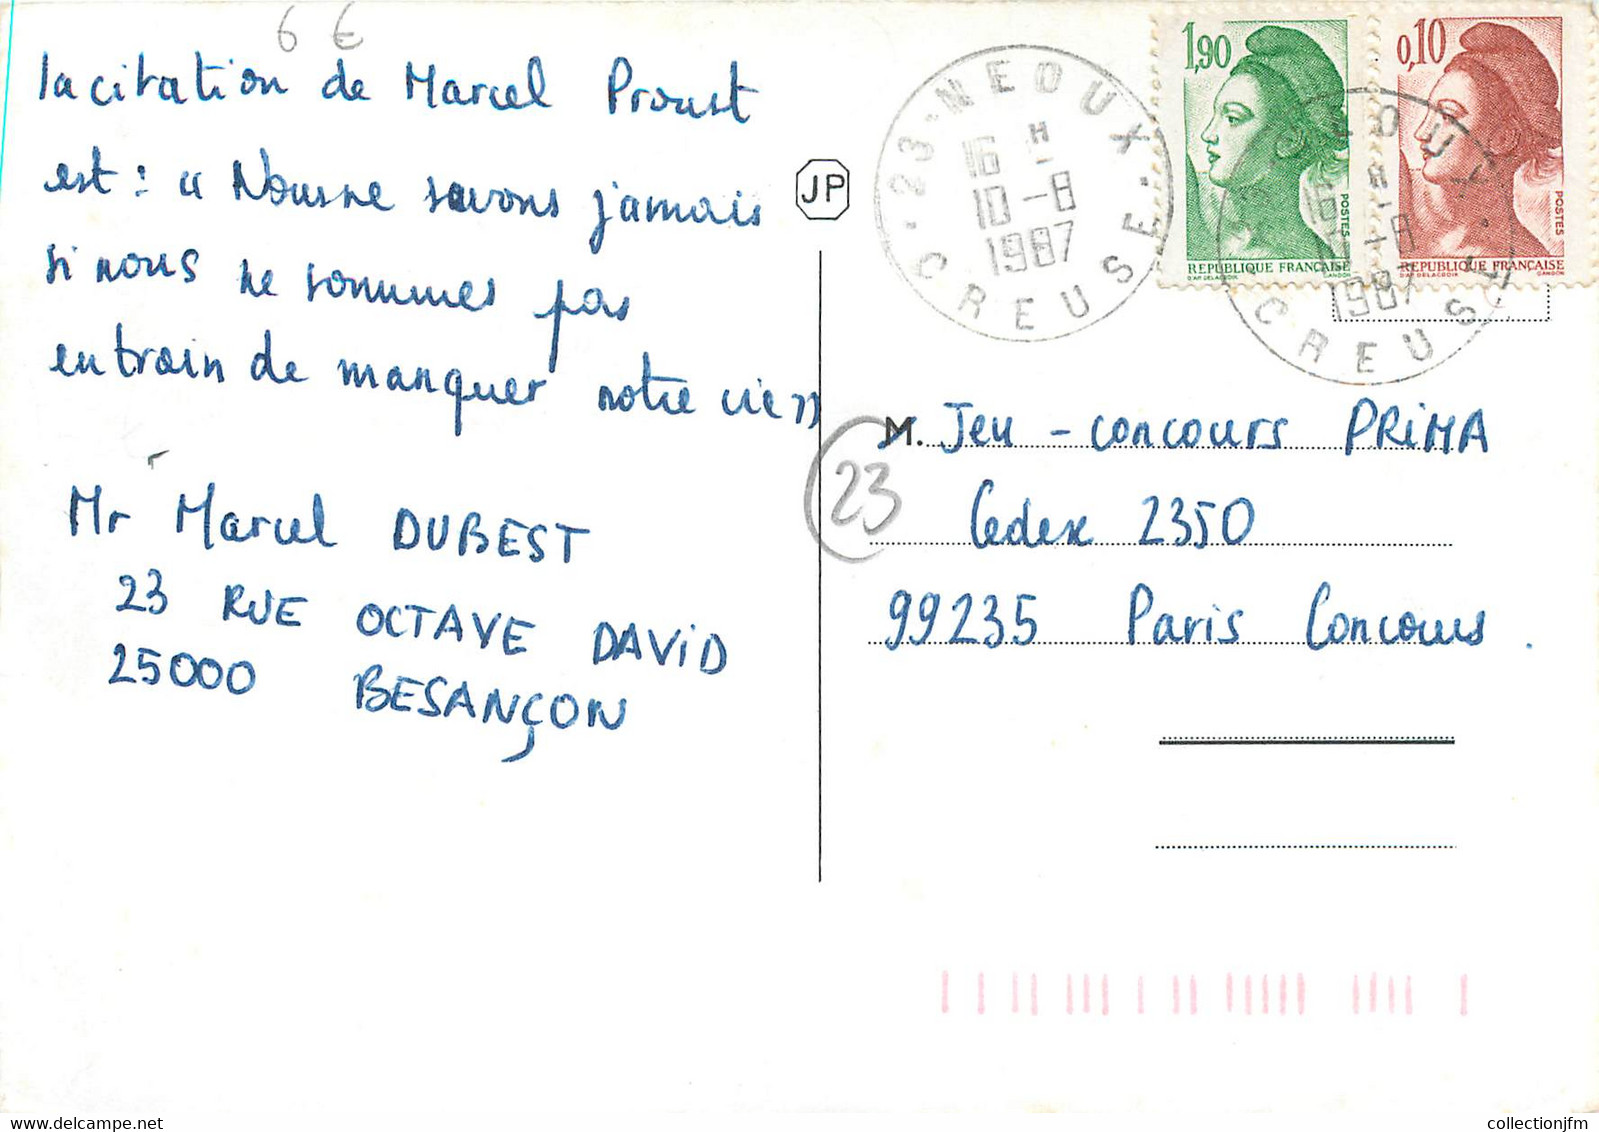 6 €
la citation de Marcel Proust
est : " Nous ne savons jamais
si nous ne sommes pas
en train de manquer notre vie "
Mr Marcel DUBEST
23 RUE OCTAVE DAVID
25000 BESANÇON
JP
23 · NEOUX · CREUSE ·
16 H
10 - 8
1987
1,90
POSTES
REPUBLIQUE FRANÇAISE
D'AP. DELACROIX GANDON
0,10
POSTES
REPUBLIQUE FRANÇAISE
D'AP. DELACROIX GANDON
NEOUX · CREUSE
16 H
10 - 8
1987
23
M. Jeu - concours PRIMA
Cedex 2350
99235 Paris Concours .
collectionjfm